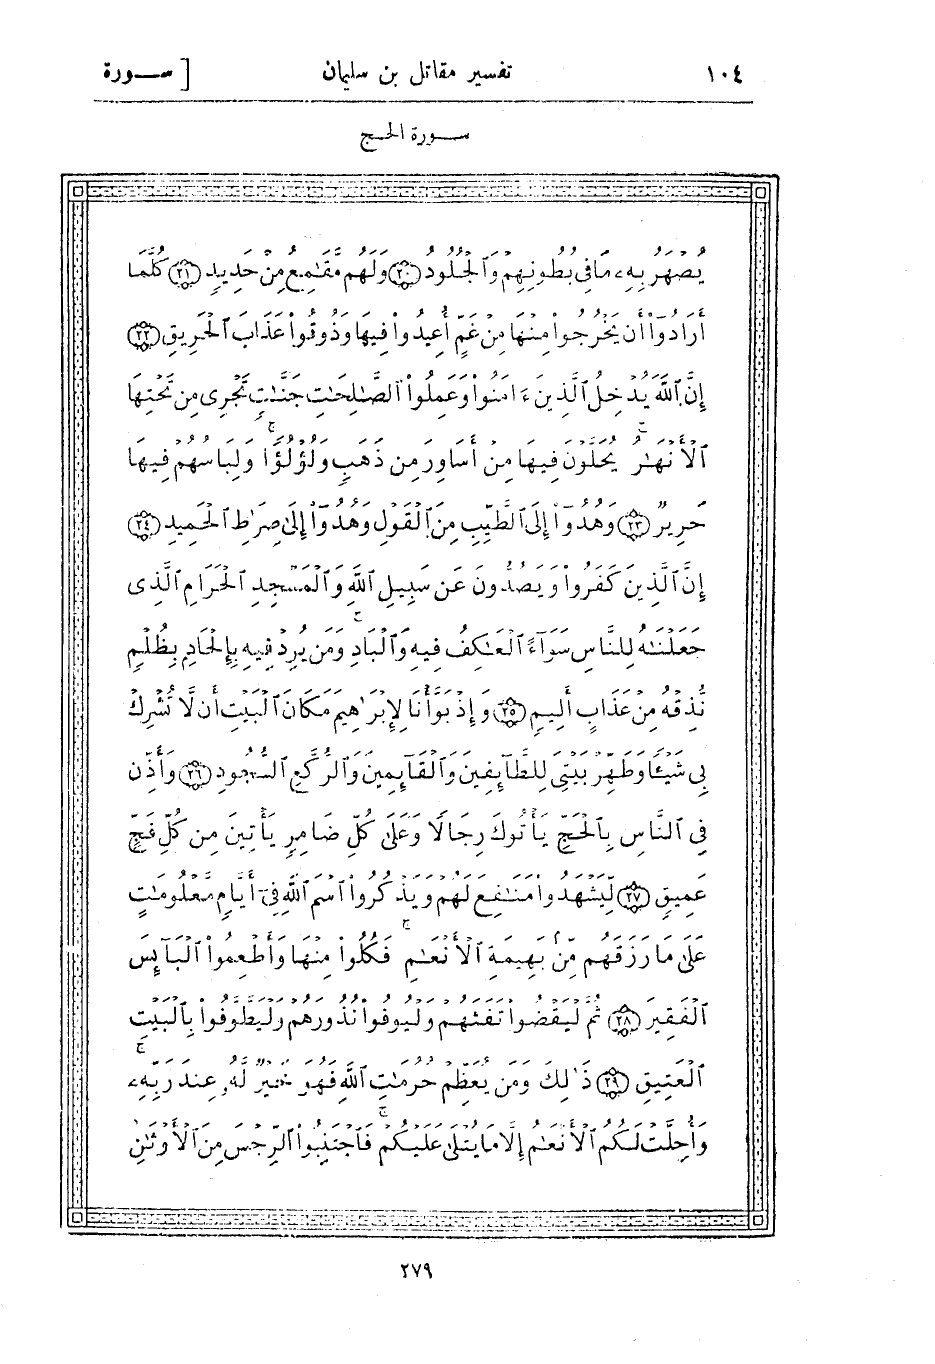 ١٠٤ تفسير مقاتل بن سليمان [ ســورة
ســورة الحــج
يُصْهَرُ بِهِۦ مَا فِى بُطُونِهِمْ وَٱلْجُلُودُ ۝٢٠ وَلَهُم مَّقَٰمِعُ مِنْ حَدِيدٍ ۝٢١ كُلَّمَآ
أَرَادُوٓا۟ أَن يَخْرُجُوا۟ مِنْهَا مِنْ غَمٍّ أُعِيدُوا۟ فِيهَا وَذُوقُوا۟ عَذَابَ ٱلْحَرِيقِ ۝٢٢
إِنَّ ٱللَّهَ يُدْخِلُ ٱلَّذِينَ ءَامَنُوا۟ وَعَمِلُوا۟ ٱلصَّٰلِحَٰتِ جَنَّٰتٍ تَجْرِى مِن تَحْتِهَا
ٱلْأَنْهَٰرُ يُحَلَّوْنَ فِيهَا مِنْ أَسَاوِرَ مِن ذَهَبٍ وَلُؤْلُؤًا ۖ وَلِبَاسُهُمْ فِيهَا
حَرِيرٌ ۝٢٣ وَهُدُوٓا۟ إِلَى ٱلطَّيِّبِ مِنَ ٱلْقَوْلِ وَهُدُوٓا۟ إِلَىٰ صِرَٰطِ ٱلْحَمِيدِ ۝٢٤
إِنَّ ٱلَّذِينَ كَفَرُوا۟ وَيَصُدُّونَ عَن سَبِيلِ ٱللَّهِ وَٱلْمَسْجِدِ ٱلْحَرَامِ ٱلَّذِى
جَعَلْنَٰهُ لِلنَّاسِ سَوَآءً ٱلْعَٰكِفُ فِيهِ وَٱلْبَادِ ۚ وَمَن يُرِدْ فِيهِ بِإِلْحَادٍۭ بِظُلْمٍ
نُّذِقْهُ مِنْ عَذَابٍ أَلِيمٍ ۝٢٥ وَإِذْ بَوَّأْنَا لِإِبْرَٰهِيمَ مَكَانَ ٱلْبَيْتِ أَن لَّا تُشْرِكْ
بِى شَيْـًٔا وَطَهِّرْ بَيْتِىَ لِلطَّآئِفِينَ وَٱلْقَآئِمِينَ وَٱلرُّكَّعِ ٱلسُّجُودِ ۝٢٦ وَأَذِّن
فِى ٱلنَّاسِ بِٱلْحَجِّ يَأْتُوكَ رِجَالًا وَعَلَىٰ كُلِّ ضَامِرٍ يَأْتِينَ مِن كُلِّ فَجٍّ
عَمِيقٍ ۝٢٧ لِّيَشْهَدُوا۟ مَنَٰفِعَ لَهُمْ وَيَذْكُرُوا۟ ٱسْمَ ٱللَّهِ فِىٓ أَيَّامٍ مَّعْلُومَٰتٍ
عَلَىٰ مَا رَزَقَهُم مِّنۢ بَهِيمَةِ ٱلْأَنْعَٰمِ ۚ فَكُلُوا۟ مِنْهَا وَأَطْعِمُوا۟ ٱلْبَآئِسَ
ٱلْفَقِيرَ ۝٢٨ ثُمَّ لْيَقْضُوا۟ تَفَثَهُمْ وَلْيُوفُوا۟ نُذُورَهُمْ وَلْيَطَّوَّفُوا۟ بِٱلْبَيْتِ
ٱلْعَتِيقِ ۝٢٩ ذَٰلِكَ وَمَن يُعَظِّمْ حُرُمَٰتِ ٱللَّهِ فَهُوَ خَيْرٌ لَّهُۥ عِندَ رَبِّهِۦ ۗ
وَأُحِلَّتْ لَكُمُ ٱلْأَنْعَٰمُ إِلَّا مَا يُتْلَىٰ عَلَيْكُمْ ۖ فَٱجْتَنِبُوا۟ ٱلرِّجْسَ مِنَ ٱلْأَوْثَٰنِ
٢٧٩